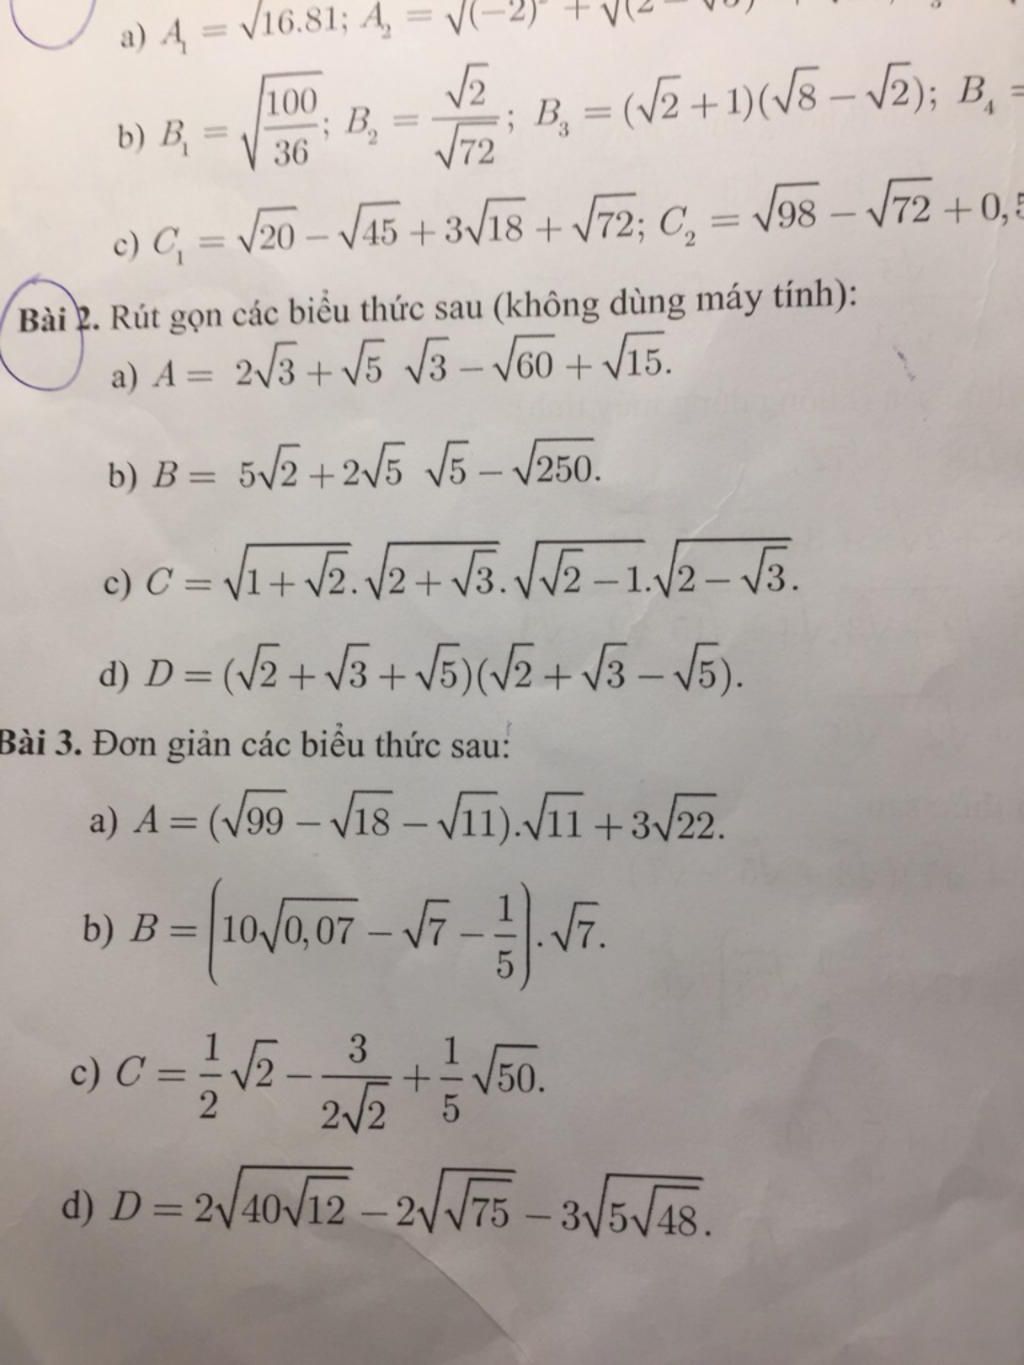 a) A₁ = √16.81; A₂ = √(−2) + √(2 −
b) B₁ = √(100/36); B₂ = √2/√72; B₃ = (√2 + 1)(√8 − √2); B₄ =
c) C₁ = √20 − √45 + 3√18 + √72; C₂ = √98 − √72 + 0,5
Bài 2. Rút gọn các biểu thức sau (không dùng máy tính):
a) A = 2√3 + √5 √3 − √60 + √15.
b) B = 5√2 + 2√5 √5 − √250.
c) C = √(1 + √2).√(2 + √3).√(√2 − 1).√(2 − √3).
d) D = (√2 + √3 + √5)(√2 + √3 − √5).
Bài 3. Đơn giản các biểu thức sau:
a) A = (√99 − √18 − √11).√11 + 3√22.
b) B = (10√0,07 − √7 − 1/5).√7.
c) C = 1/2 √2 − 3/(2√2) + 1/5 √50.
d) D = 2√(40√12) − 2√(√75) − 3√(5√48).